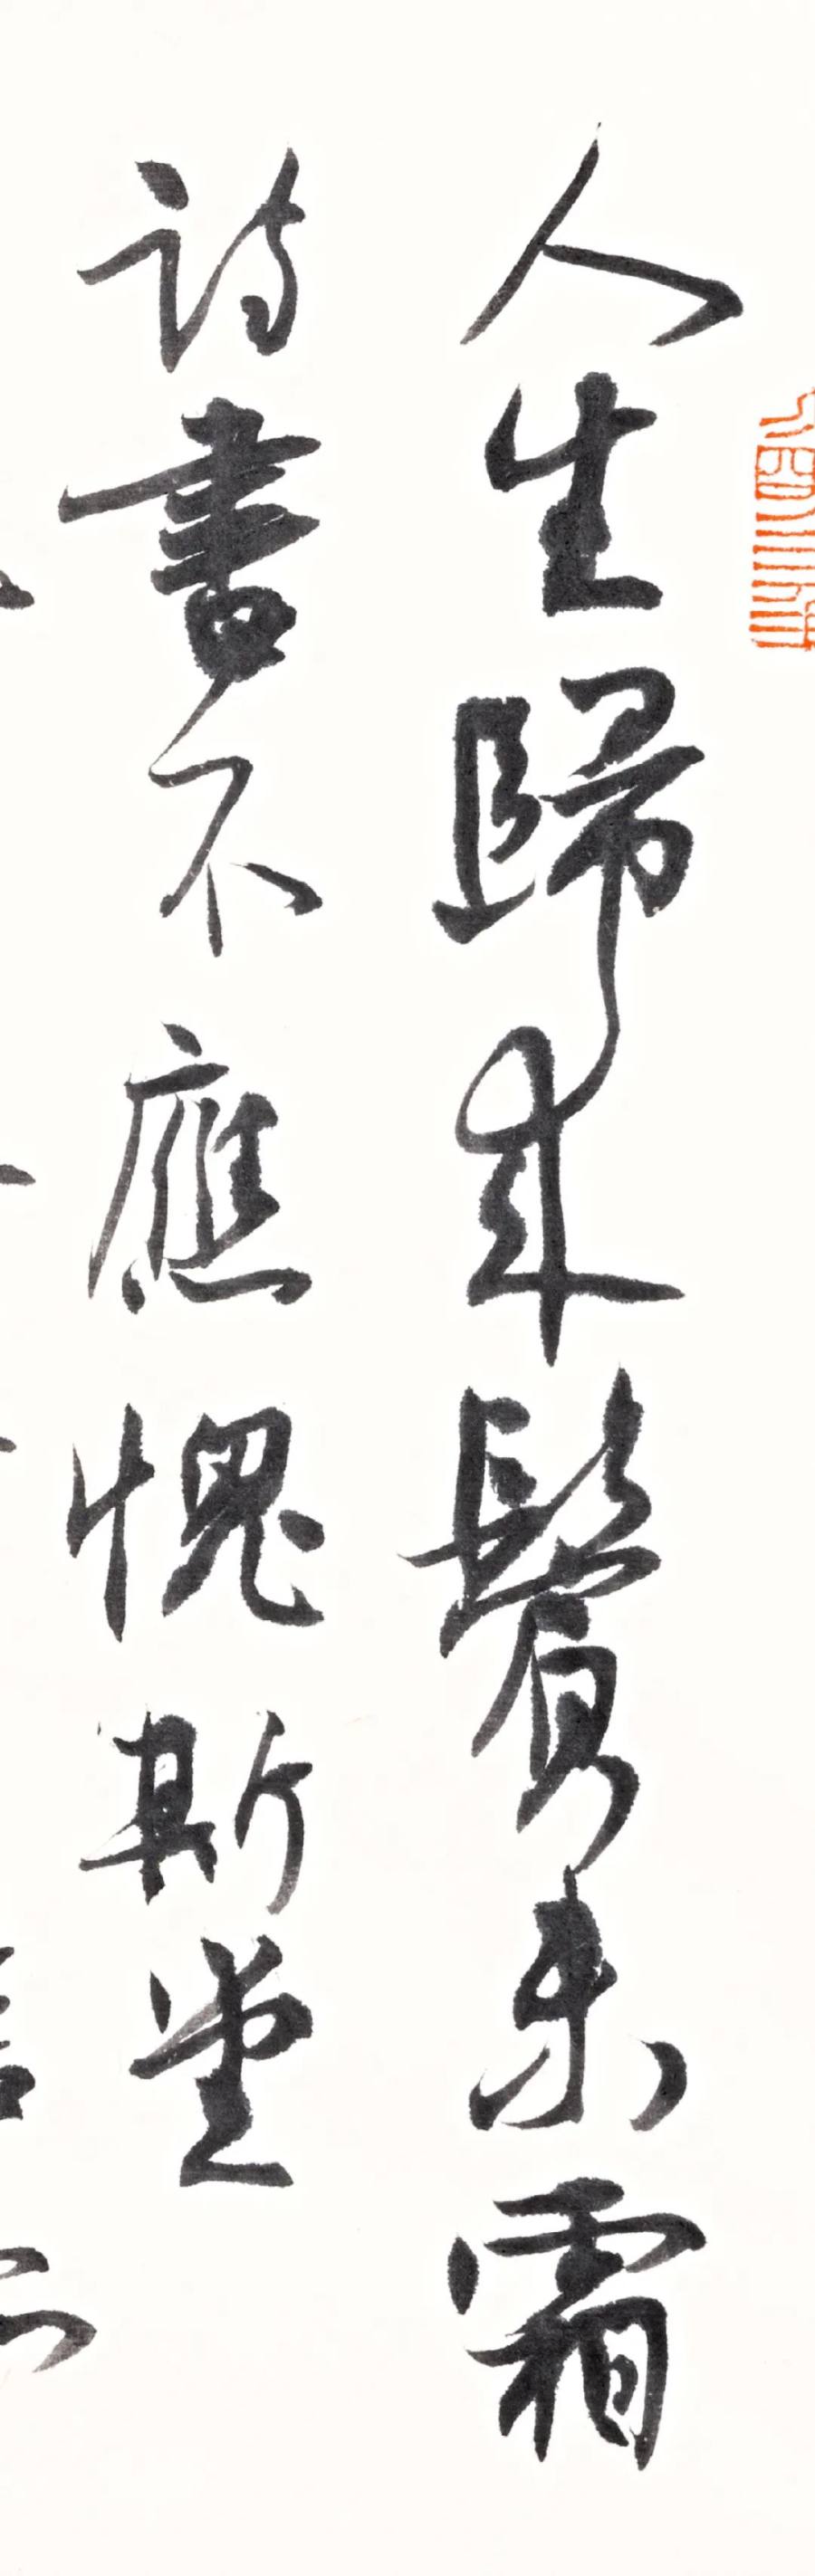 人生歸來鬢未霜
詩書不應愧斯堂